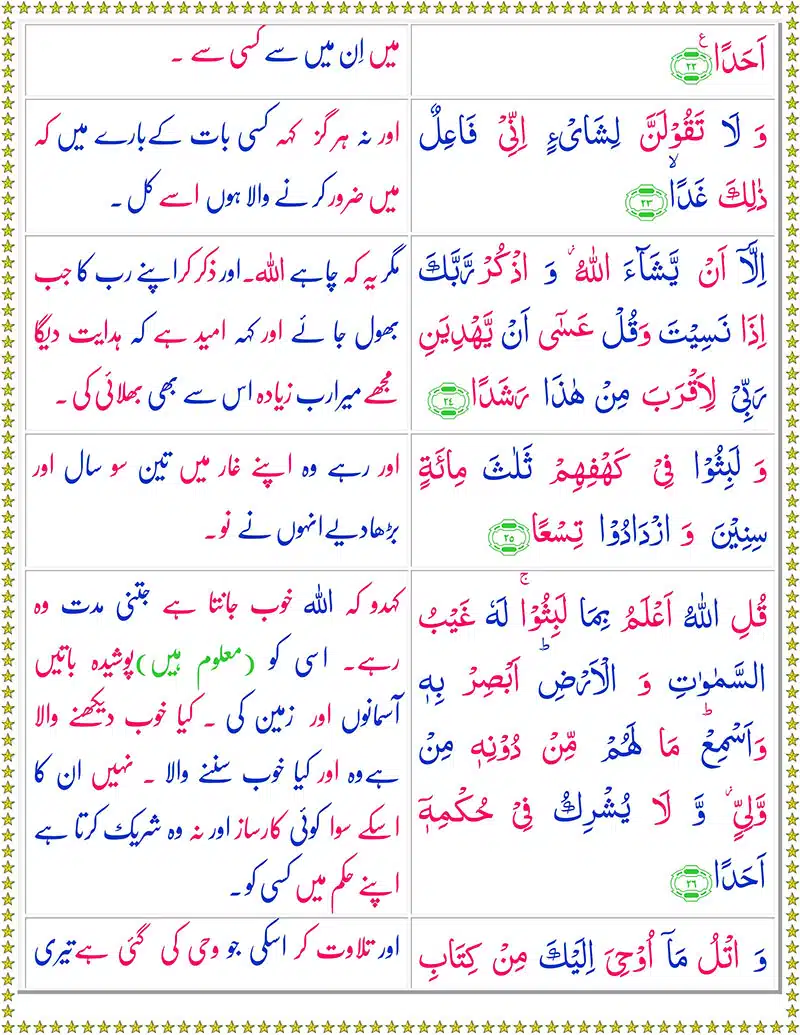 اَحَدًا ۲۲
میں اِن میں سے کسی سے ۔
وَ لَا تَقُوۡلَنَّ لِشَایۡءٍ اِنِّیۡ فَاعِلٌ
ذٰلِكَ غَدًاۙ ۲۳
اور نہ ہرگز کہہ کسی بات کے بارے میں کہ
میں ضرور کرنے والا ہوں اسے کل ۔
اِلَّاۤ اَنۡ یَّشَآءَ اللّٰهُ ؗ وَ اذۡكُرۡ رَّبَّكَ
اِذَا نَسِیۡتَ وَقُلۡ عَسٰۤی اَنۡ یَّهۡدِیَنِ
رَبِّیۡ لِاَقۡرَبَ مِنۡ هٰذَا رَشَدًا ۲۴
مگر یہ کہ چاہے اللہ۔اور ذکر کر اپنے رب کا جب
بھول جائے اور کہہ امید ہے کہ ہدایت دیگا
مجھے میرا رب زیادہ اس سے بھی بھلائی کی ۔
وَ لَبِثُوۡا فِیۡ كَهۡفِهِمۡ ثَلٰثَ مِائَةٍ
سِنِیۡنَ وَ ازۡدَادُوۡا تِسۡعًا ۲۵
اور رہے وہ اپنے غار میں تین سو سال اور
بڑھا دیے انہوں نے نو۔
قُلِ اللّٰهُ اَعۡلَمُ بِمَا لَبِثُوۡاۚ لَهٗ غَیۡبُ
السَّمٰوٰتِ وَ الۡاَرۡضِؕ اَبۡصِرۡ بِهٖ
وَاَسۡمِعۡؕ مَا لَهُمۡ مِّنۡ دُوۡنِهٖ مِنۡ
وَّلِیٍّ ؗ وَّ لَا یُشۡرِكُ فِیۡ حُكۡمِهٖۤ
اَحَدًا ۲۶
کہدو کہ اللہ خوب جانتا ہے جتنی مدت وہ
رہے۔ اسی کو (معلوم ہیں) پوشیدہ باتیں
آسمانوں اور زمین کی ۔ کیا خوب دیکھنے والا
ہے وہ اور کیا خوب سننے والا ۔ نہیں ان کا
اسکے سوا کوئی کارساز اور نہ وہ شریک کرتا ہے
اپنے حکم میں کسی کو۔
وَ اتۡلُ مَاۤ اُوۡحِیَ اِلَیۡكَ مِنۡ كِتَابِ
اور تلاوت کر اسکی جو وحی کی گئی ہے تیری